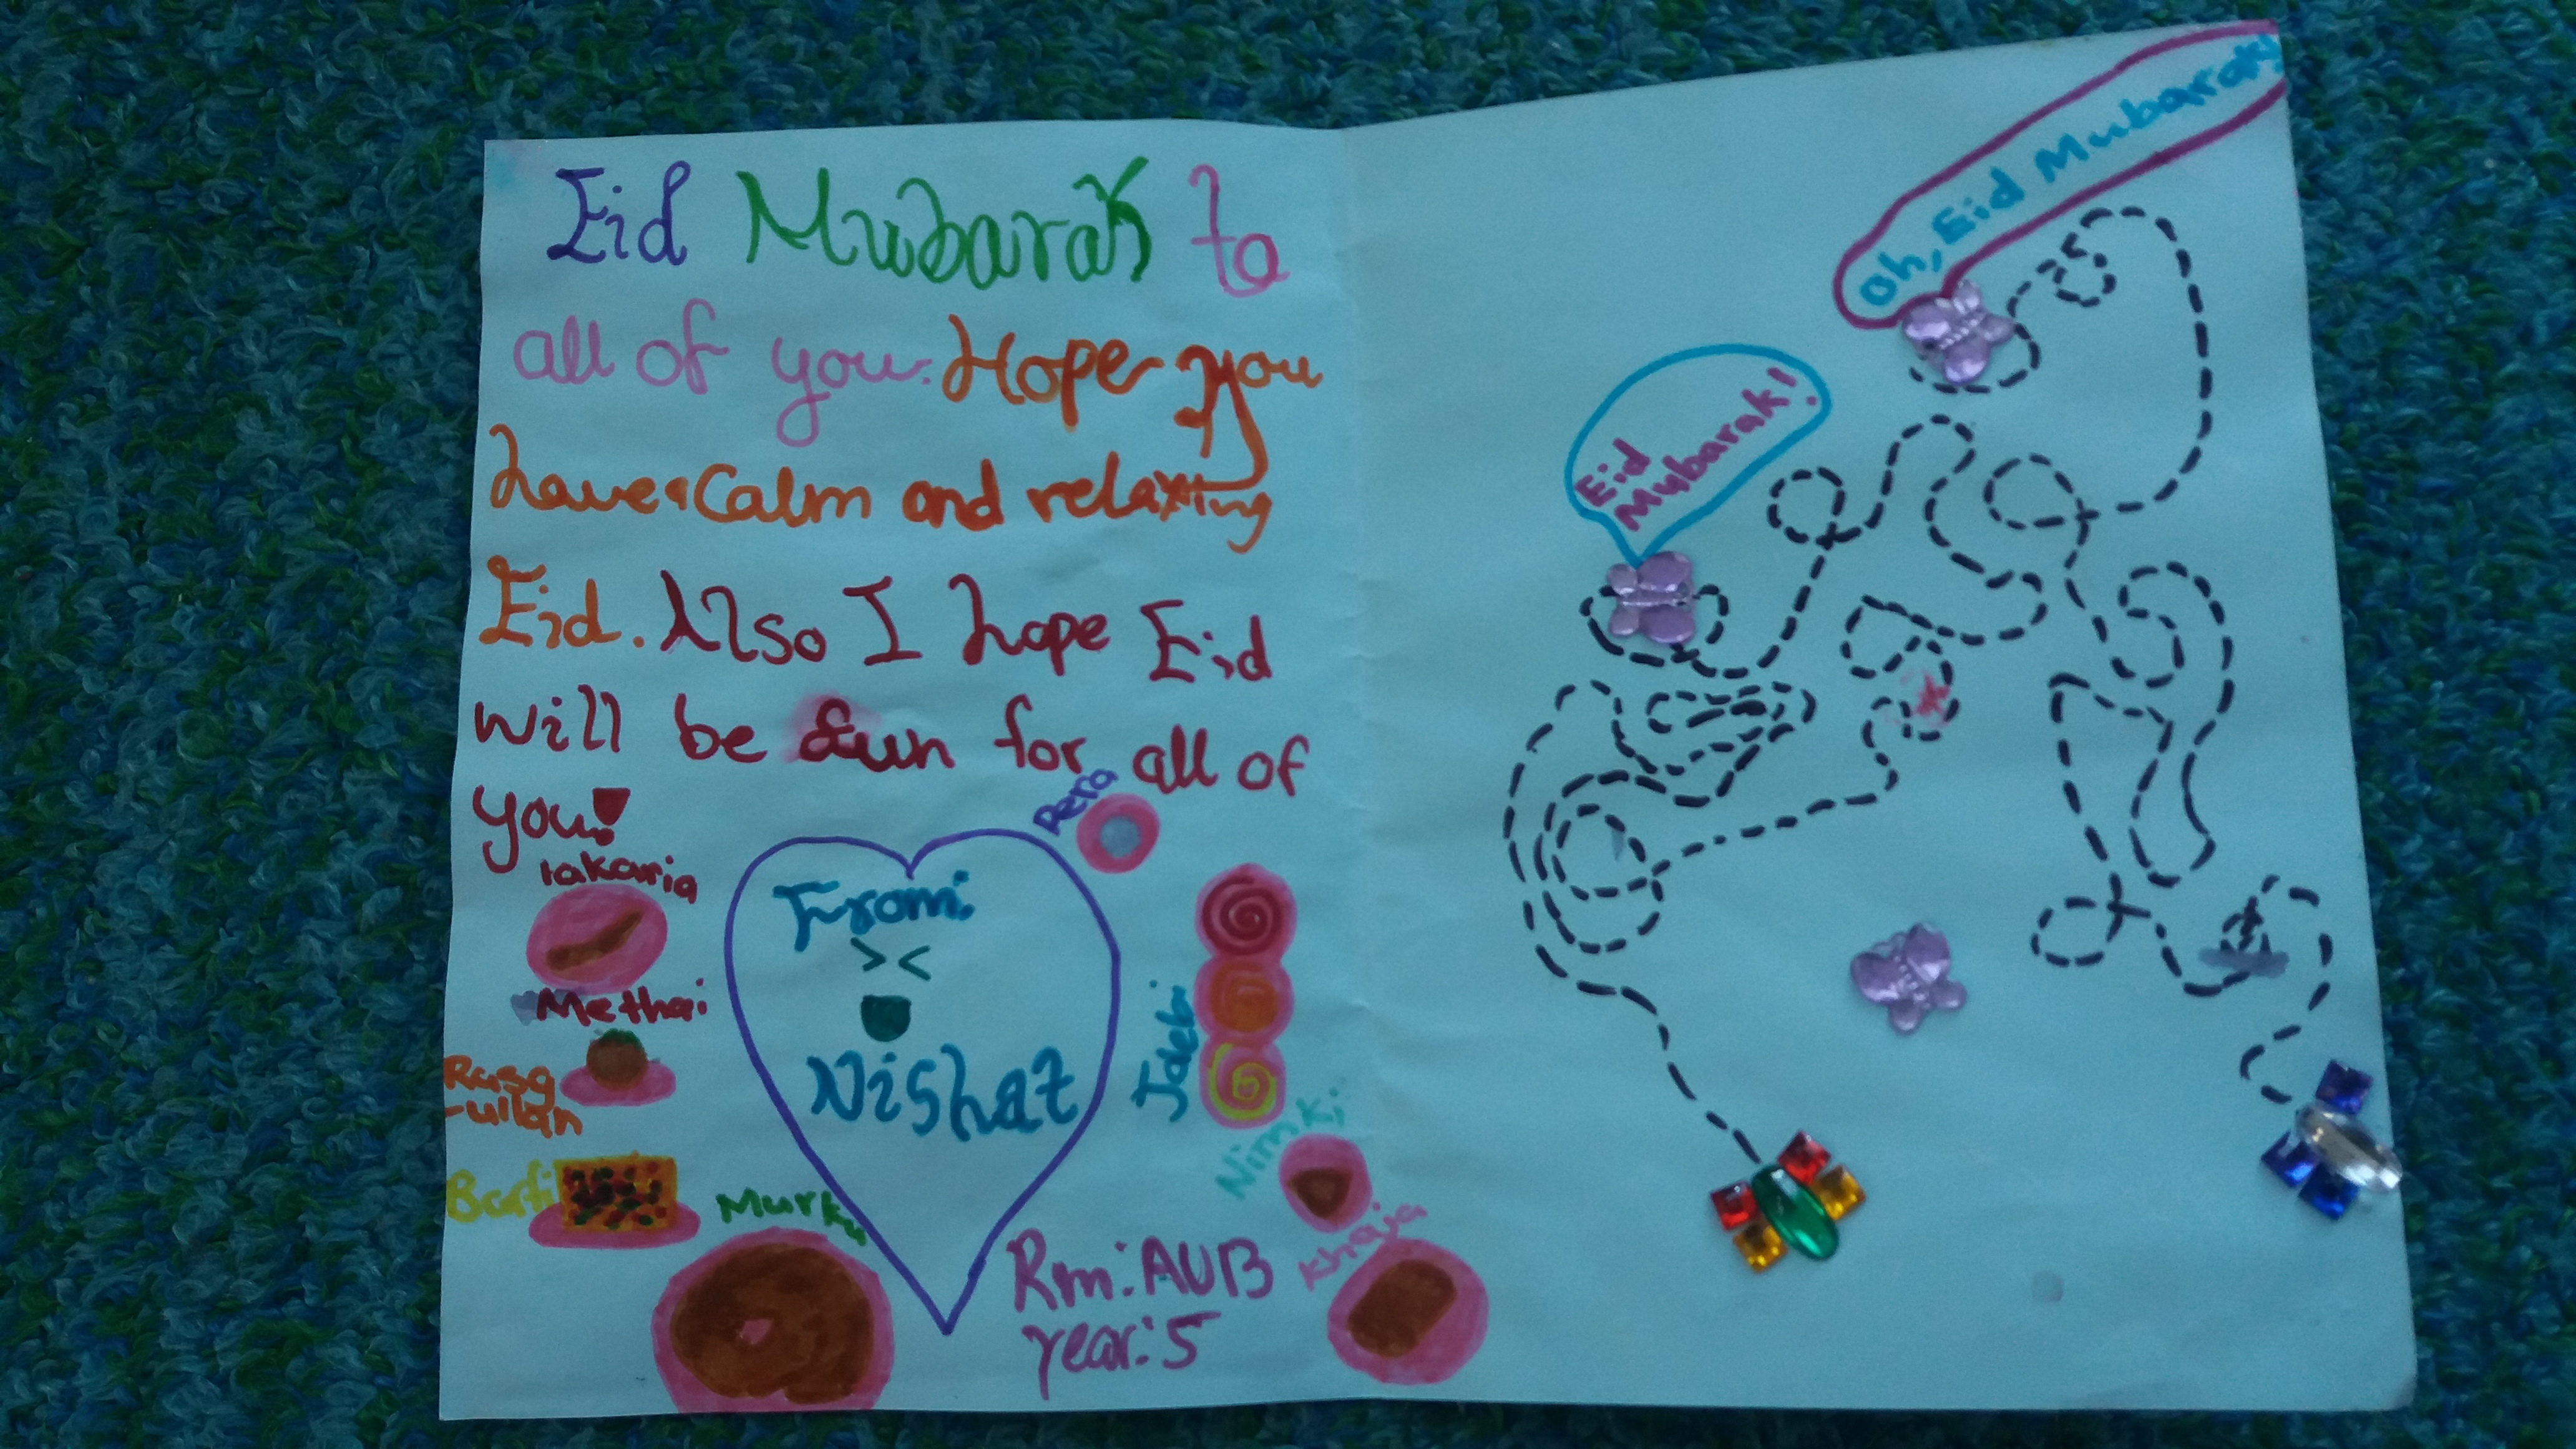 Eid Mubarak to
all of you. Hope you
have a Calm and relaxing
Eid. Also I hope Eid
will be fun for all of
you!
Pera
lakaria
From:
Methai
Jalebi
Rasg
-ullah
Nishat
Nimki
Barfi
Murku
Khaja
Rm: AUB
year: 5
Oh, Eid Mubarak!
Eid
Mubarak!